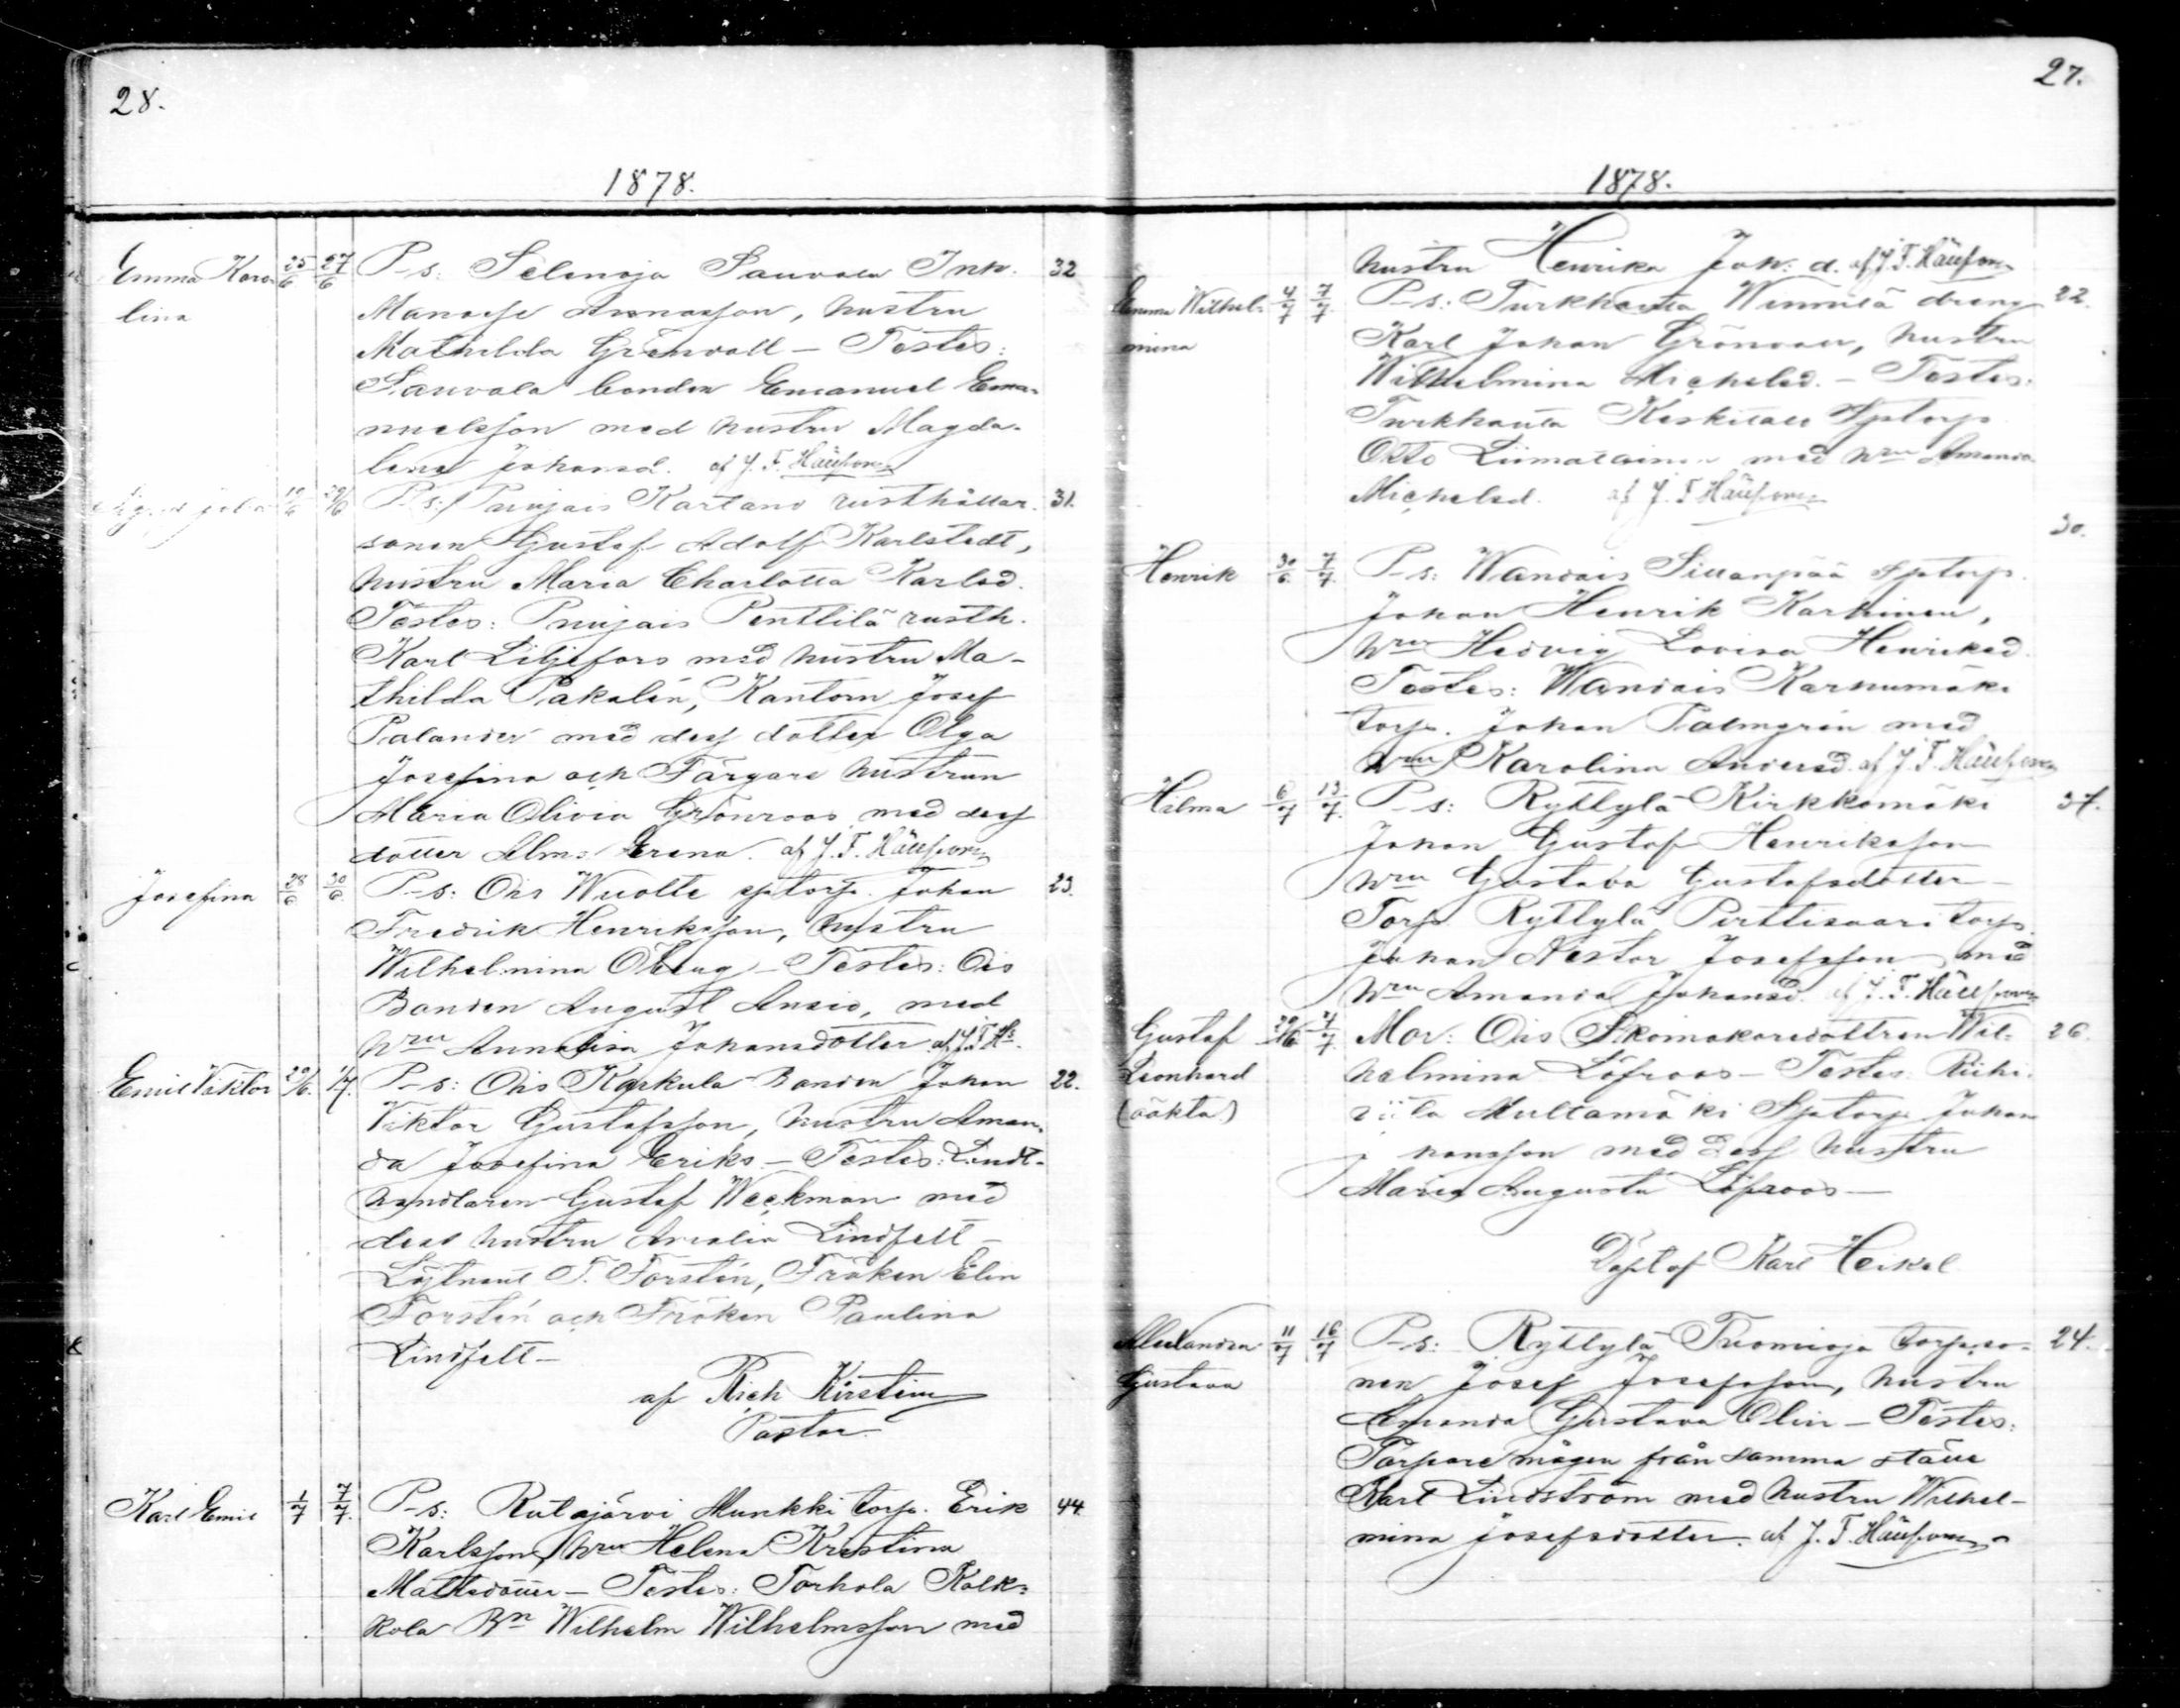 28.
1878.
Emma Karo-
lina
25/6 27/6 P-s: Selänoja Sauvala Inh. 32
Manasse Ananasson, hustru
Mathilda Grönvall – Testes:
Sauvala bonden Emanuel Ema-
nuelsson med hustru Magda-
lena Johansd. af J. F. 
29/6 P-s: Puujais Kartano rusthållar- 31.
sonen Gustaf Adolf Karlstedt,
hustru Maria Charlotta Karlsd.
Testes: Puujais Penttilä rusth.
Karl Liljefors med hustru Ma-
thilda Pakalén, Kantorn Josef
Palander med dess dotter Olga
Josefina och Färgare hustrun
Maria Olivia Grönroos med dess
dotter Alma Irena. af J. F.
Josefina 28/6 30/6 P-s: Ois Wuolte sptorp. Johan 23.
Fredrik Henriksson, hustru
Wilhelmina Öberg – Testes: Ois
Bonden August Ansio, med
hru Annalisa Johansdotter af J. F. Hs.
Emil Viktor 29/6. 1/7. P-s: Ois Karkula Bonden Johan 22.
Viktor Gustafsson, hustru Aman-
da Josefina Eriks – Testes: Landt-
handlaren Gustaf Weckman med
dess hustru Amalia Lindfelt –
Löjtnant F. Forstén, Fröken Elin
Forstén och Fröken Paulina
Lindfelt –
af Rich Kirstein
Pastor
Karl Emil 1/7 7/7. P-s: Rutajärvi Munkki torp. Erik 44
Karlsson, hru Helena Kristina
Mattsdotter – Testes: Torhola Kolk-
kola Bn Wilhelm Wilhelmsson med
27.
1878.
hustru Henrika Joh. d. af J. F.
Emma Wilhel-
mina
4/7 7/7. P-s: Turkhauta Wennilä dreng 22.
Karl Johan Grönvall, hustru
Wilhelmina Michelsd. – Testes:
Turkhauta Keskitalo Sptorp
Otto Liimatainen med hru Amanda
Michelsd. af J. F.
30.
Henrik 30/6. 7/7. P-s: Wandais Sillanpää sptorp.
Johan Henrik Karhinen,
hru Hedvig Lovisa Henriksd.
Testes: Wandais Karhumäki
torp. Johan Palmgrén med
hru Karolina Andersd. af J. F.
Hilma 6/7 13/7. P-s: Ryttylä Kirkkomäki 37.
Johan Gustaf Henriksson
hru Gustava Gustafsdotter –
Torp. Ryttylä Pirttisaari torp.
Johan Nestor Josefsson med
hru Amanda Johansd. af J. F.
Gustaf
Leonhard
(oäkta)
29/6 7/7. Mor: Ois Skomakaredottren Wil- 26.
helmina Löfroos – Testes: Riihi-
viita Multamäki Sptorp. Johan
hansson med dess hustru
Maria Augusta Löfroos –
Döpt af Karl Heikel
Alexandra
Gustava
11/7 16/7 P-s: Ryttylä Tuomioja torpso- 24.
nen Josef Josefsson, hustru
Amanda Gustava Olin – Testes:
Torpare mågen från samma ställe
Karl Lindström med hustru Wilhel-
mina Josefsdotter. af J. F.